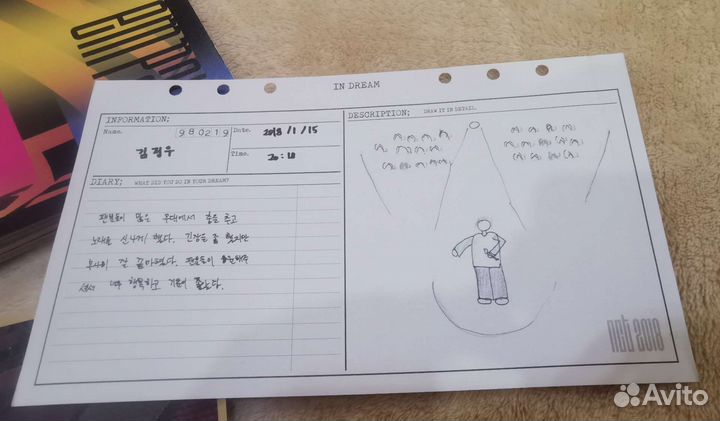 IN DREAM
INFORMATION;
Name.
980219
김정우
Date.
2018/1/15
Time.
20:18
DIARY;
WHAT DID YOU DO IN YOUR DREAM?
팬분들이 많은 무대에서 춤을 추고
노래를 신나게 했다. 긴장을 좀 했지만
무사히 잘 끝마쳤다. 팬분들이 응원해주
셔서 너무 행복하고 기분이 좋았다.
DESCRIPTION;
DRAW IT IN DETAIL.
nct 2018
Avito